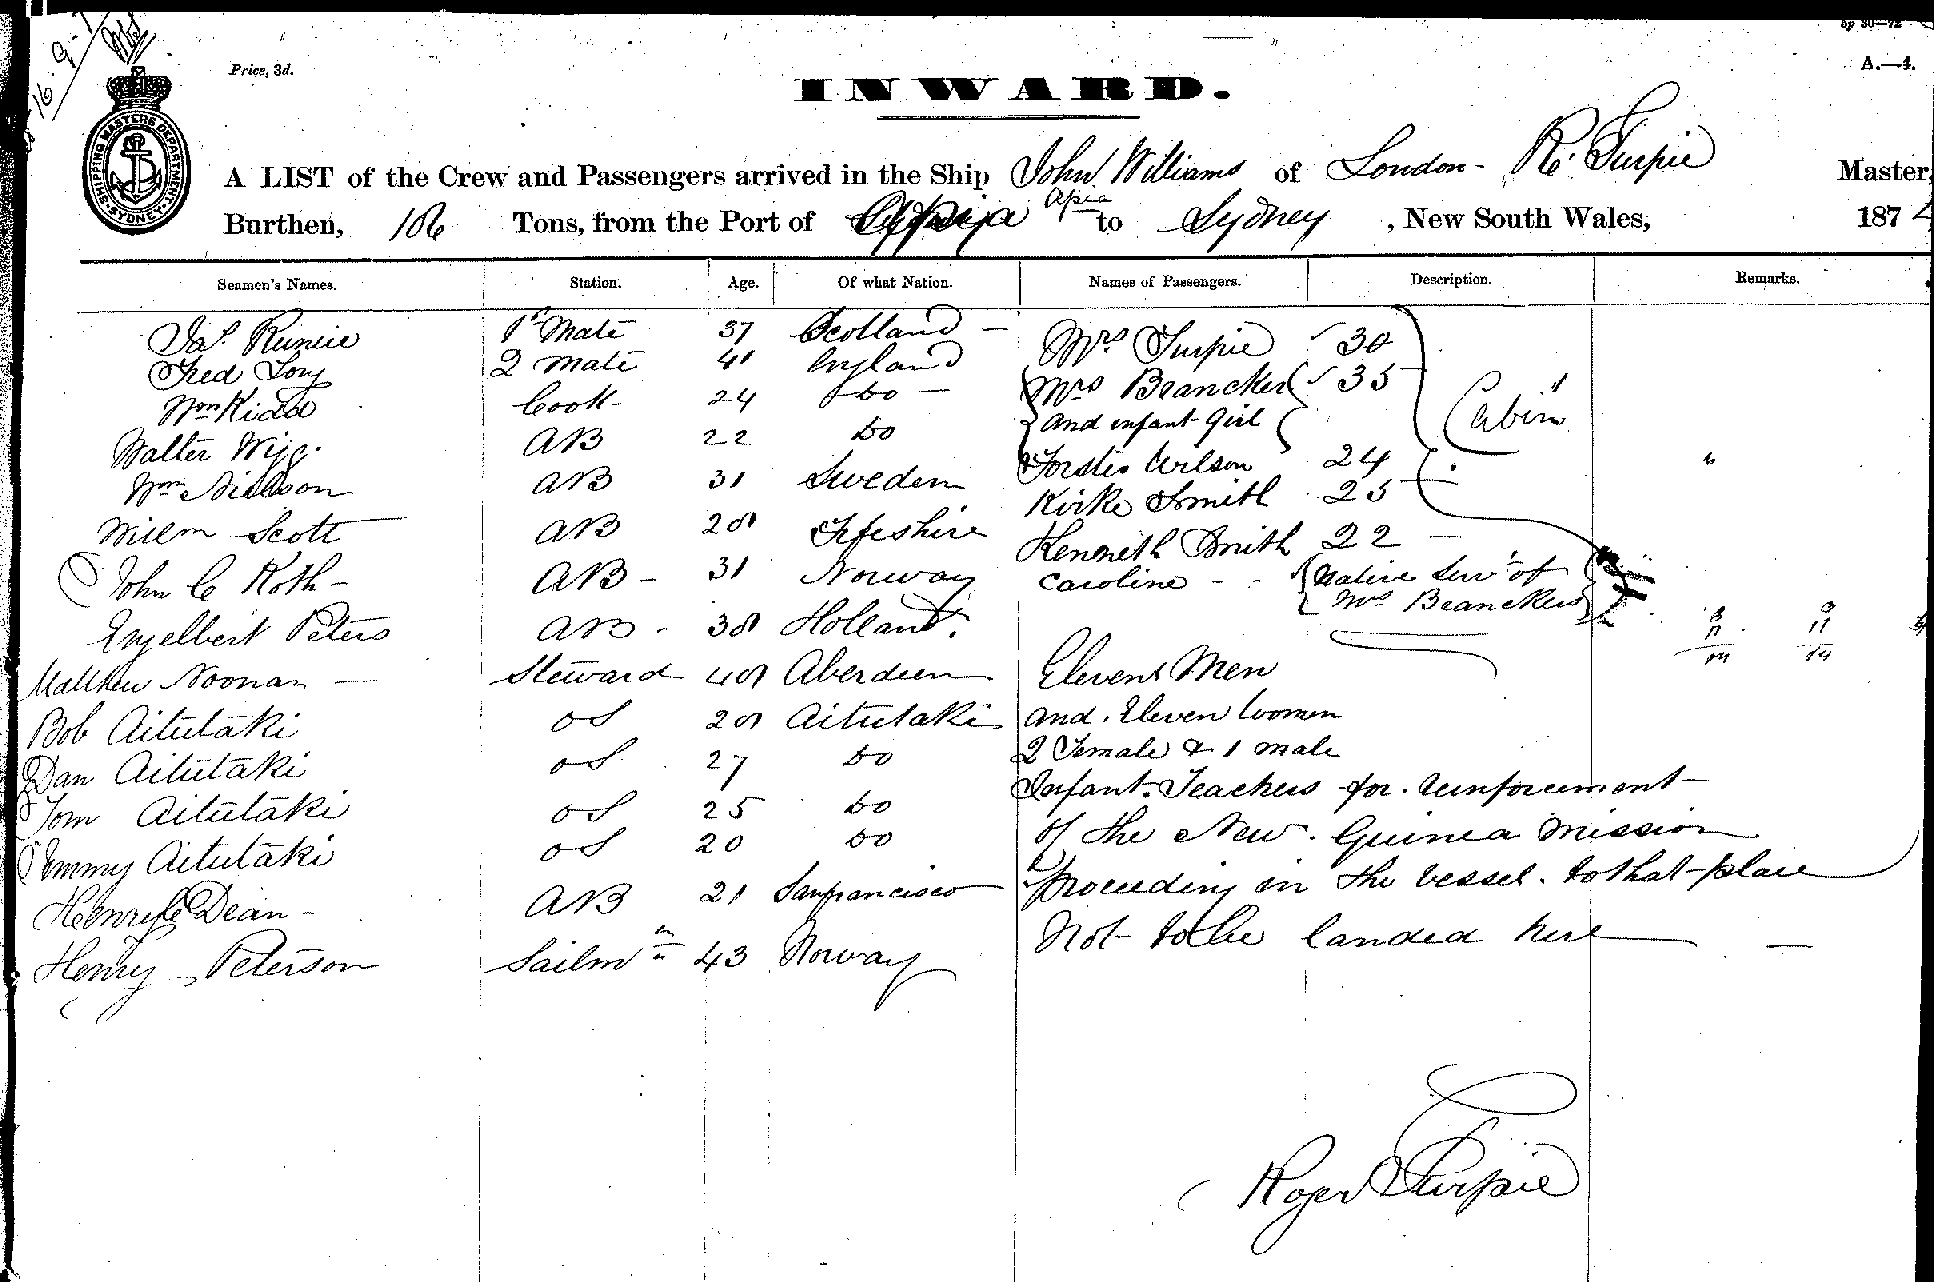 16-9-7
Price, 3d.
A.—4.
INWARD.
SHIPPING MASTERS DEPARTMENT
SYDNEY
A LIST of the Crew and Passengers arrived in the Ship John Williams of London - R. Turpie Master,
Apia
Burthen, 186 Tons, from the Port of Apia to Sydney, New South Wales, 187
Seamen's Names. Station. Age. Of what Nation. Names of Passengers. Description. Remarks.
Jas. Runcie 1st Mate 37 Scotland - Mrs Turpie 30
Fred Long 2 Mate 41 England Mrs Brancker 35 Cabin
Wm Kidd Cook 24 Do - and infant Girl
Walter Wigg. AB 22 Do Wilson 24
Wm Nielson AB 31 Sweden Kirke Smith 25
Willm Scott AB 28 Fifeshire Kenneith Smith 22 -
John C Roth - AB - 31 Norway Caroline - - Native Servt of
Mrs Branckers
Engelbert Peters AB - 38 Holland.
Matthew Noonan - Steward 48 Aberdeen Eleven Men
Bob Aitutaki OS 28 Aitutaki and Eleven women
Dan Aitutaki OS 27 Do 2 Female & 1 male
Tom Aitutaki OS 25 Do Infant. Teachers for reinforcement
Jimmy Aitutaki OS 20 Do of the New Guinea Mission
Henry C Dean - AB 21 Sanfrancisco proceeding in the vessel to that place
Henry Peterson Sailmr 43 Norway Not to be landed here -
Roger Turpie